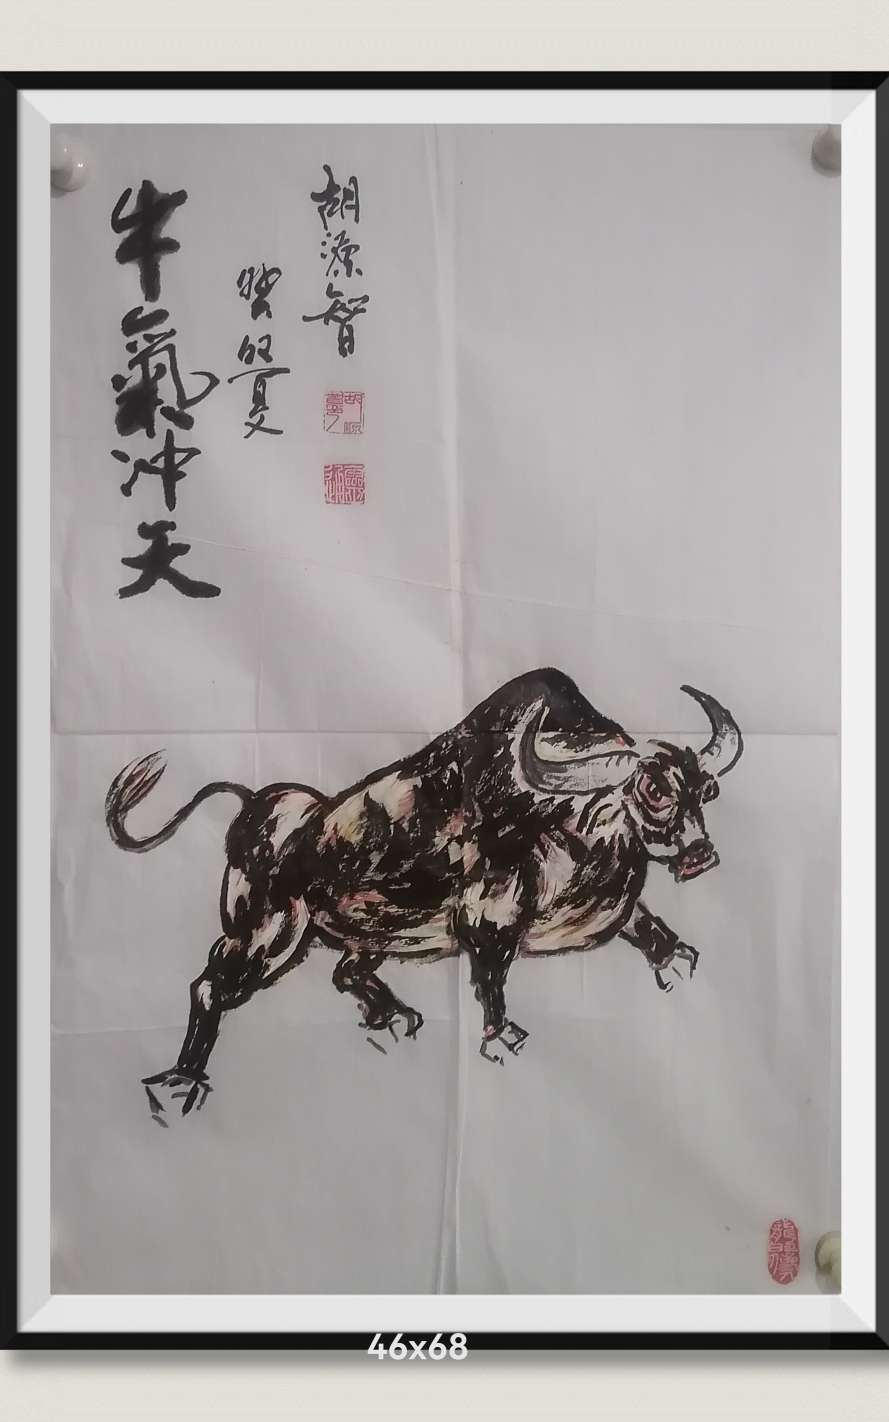 牛氣冲天
癸卯夏
胡源智
46x68